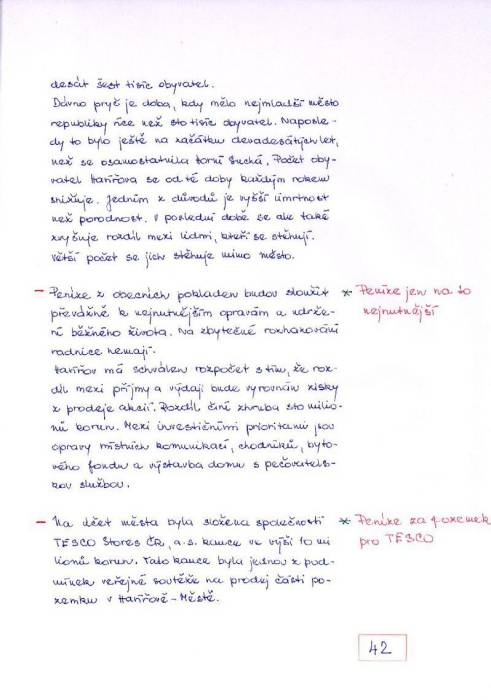 desát šest tisíc obyvatel.
Dávno pryč je doba, kdy mělo nejmladší město
republiky více než sto tisíc obyvatel. Naposle-
dy to bylo ještě na začátku devadesátých let,
než se osamostatnila Horní Suchá. Počet oby-
vatel Havířova se od té doby každým rokem
snižuje. Jedním z důvodů je vyšší úmrtnost
než porodnost. V poslední době se ale také
zvyšuje rozdíl mezi lidmi, kteří se stěhují.
Větší počet se jich stěhuje mimo město.
- Peníze z obecních pokladen budou sloužit
převážně k nejnutnějším opravám a udrže-
ní běžného života. Na zbytečné rozhazování
radnice nemají.
Havířov má schválen rozpočet s tím, že roz-
díl mezi příjmy a výdaji bude vyrovnán zisky
z prodeje akcií. Rozdíl činí zhruba sto milio-
nů korun. Mezi investičními prioritami jsou
opravy místních komunikací, chodníků, byto-
vého fondu a výstavba domu s pečovatels-
kou službou.
* Peníze jen na to
nejnutnější
- Na účet města byla složena společností
TESCO Stores ČR, a.s. kauce ve výši 10 mi
lionů korun. Tato kauce byla jednou z pod-
mínek veřejné soutěže na prodej části po-
zemku v Havířově-Městě.
* Peníze za pozemek
pro TESCO
42